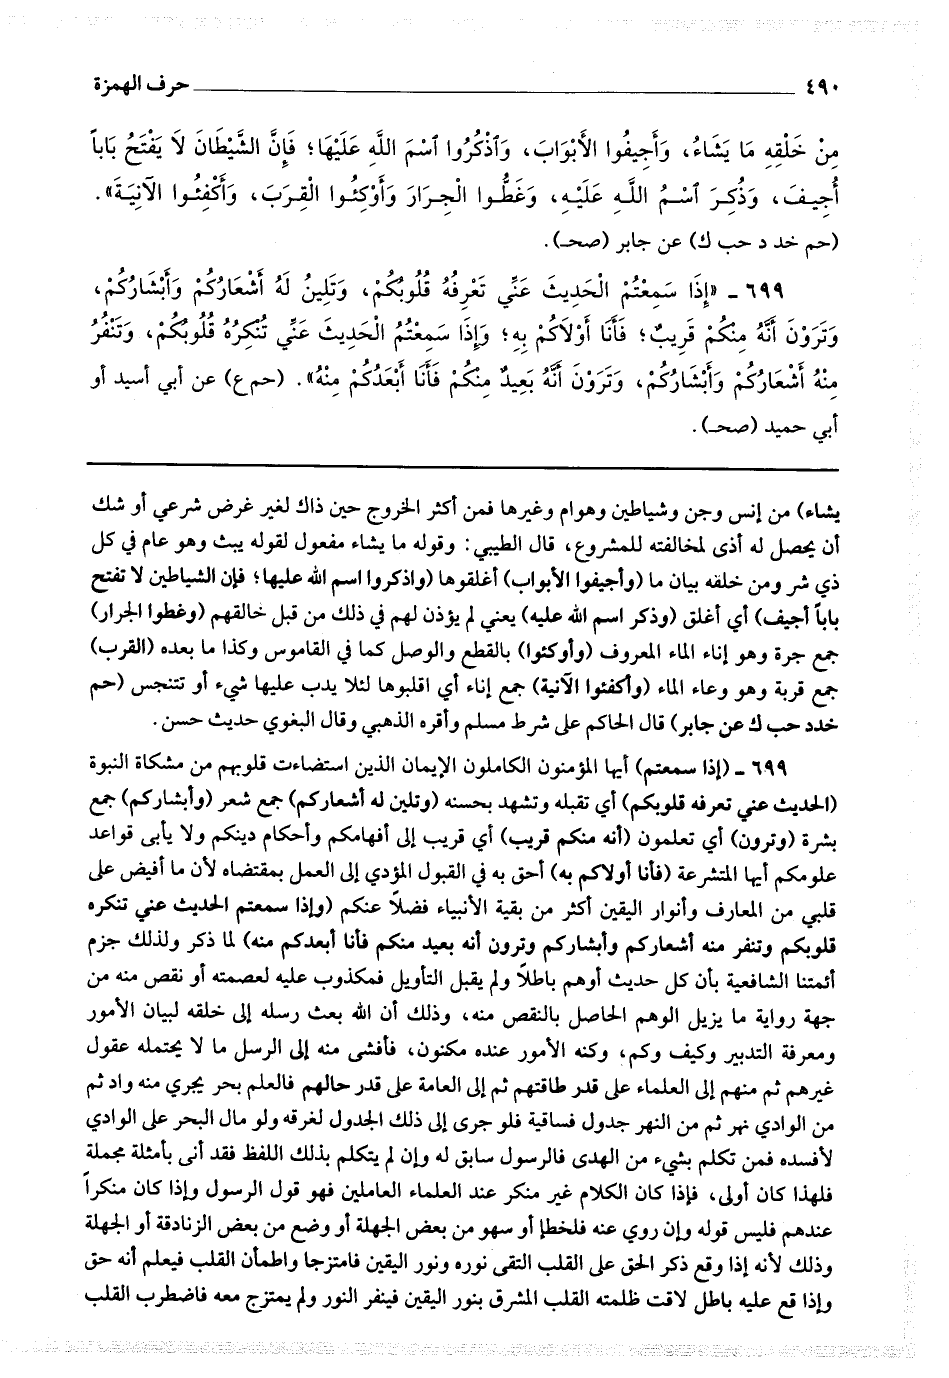 ٤٩٠ حرف الهمزة
مِنْ خَلْقِهِ مَا يَشَاءُ، وَأَجِيفُوا الأَبْوَابَ، وَٱذْكُرُوا ٱسْمَ اللَّهِ عَلَيْهَا؛ فَإِنَّ الشَّيْطَانَ لَا يَفْتَحُ بَاباً
أُجِيفَ، وَذُكِرَ ٱسْمُ اللَّهِ عَلَيْهِ، وَغَطُّوا الْجِرَارَ وَأَوْكِئُوا الْقِرَبَ، وَأَكْفِئُوا الآنِيَةَ».
(حم خد د حب ك) عن جابر (صحـ).
٦٩٩ ـ «إِذَا سَمِعْتُمْ الْحَدِيثَ عَنِّي تَعْرِفُهُ قُلُوبُكُمْ، وَتَلِينُ لَهُ أَشْعَارُكُمْ وَأَبْشَارُكُمْ،
وَتَرَوْنَ أَنَّهُ مِنْكُمْ قَرِيبٌ؛ فَأَنَا أَوْلَاكُمْ بِهِ؛ وَإِذَا سَمِعْتُمُ الْحَدِيثَ عَنِّي تُنْكِرُهُ قُلُوبُكُمْ، وَتَنْفُرُ
مِنْهُ أَشْعَارُكُمْ وَأَبْشَارُكُمْ، وَتَرَوْنَ أَنَّهُ بَعِيدٌ مِنْكُمْ فَأَنَا أَبْعَدُكُمْ مِنْهُ». (حم ع) عن أبي أسيد أو
أبي حميد (صحـ).
يشاء) من إنس وجن وشياطين وهوام وغيرها فمن أكثر الخروج حين ذاك لغير غرض شرعي أو شك
أن يحصل له أذى لمخالفته للمشروع، قال الطيبي: وقوله ما يشاء مفعول لقوله يبث وهو عام في كل
ذي شر ومن خلقه بيان ما (وأجيفوا الأبواب) أغلقوها (واذكروا اسم الله عليها؛ فإن الشياطين لا تفتح
باباً أجيف) أي أغلق (وذكر اسم الله عليه) يعني لم يؤذن لهم في ذلك من قبل خالقهم (وغطوا الجرار)
جمع جرة وهو إناء الماء المعروف (وأوكئوا) بالقطع والوصل كما في القاموس وكذا ما بعده (القرب)
جمع قربة وهو وعاء الماء (وأكفئوا الآنية) جمع إناء أي اقلبوها لئلا يدب عليها شيء أو تتنجس (حم
خدد حب ك عن جابر) قال الحاكم على شرط مسلم وأقره الذهبي وقال البغوي حديث حسن.
٦٩٩ ـ (إذا سمعتم) أيها المؤمنون الكاملون الإيمان الذين استضاءت قلوبهم من مشكاة النبوة
(الحديث عني تعرفه قلوبكم) أي تقبله وتشهد بحسنه (وتلين له أشعاركم) جمع شعر (وأبشاركم) جمع
بشرة (وترون) أي تعلمون (أنه منكم قريب) أي قريب إلى أفهامكم وأحكام دينكم ولا يأبى قواعد
علومكم أيها المتشرعة (فأنا أولاكم به) أحق به في القبول المؤدي إلى العمل بمقتضاه لأن ما أفيض على
قلبي من المعارف وأنوار اليقين أكثر من بقية الأنبياء فضلاً عنكم (وإذا سمعتم الحديث عني تنكره
قلوبكم وتنفر منه أشعاركم وأبشاركم وترون أنه بعيد منكم فأنا أبعدكم منه) لما ذكر ولذلك جزم
أئمتنا الشافعية بأن كل حديث أوهم باطلاً ولم يقبل التأويل فمكذوب عليه لعصمته أو نقص منه من
جهة رواية ما يزيل الوهم الحاصل بالنقص منه، وذلك أن الله بعث رسله إلى خلقه لبيان الأمور
ومعرفة التدبير وكيف وكم، وكنه الأمور عنده مكنون، فأفشى منه إلى الرسل ما لا يحتمله عقول
غيرهم ثم منهم إلى العلماء على قدر طاقتهم ثم إلى العامة على قدر حالهم فالعلم بحر يجري منه واد ثم
من الوادي نهر ثم من النهر جدول فساقية فلو جرى إلى ذلك الجدول لغرقه ولو مال البحر على الوادي
لأفسده فمن تكلم بشيء من الهدى فالرسول سابق له وإن لم يتكلم بذلك اللفظ فقد أتى بأمثلة مجملة
فلهذا كان أولى، فإذا كان الكلام غير منكر عند العلماء العاملين فهو قول الرسول وإذا كان منكراً
عندهم فليس قوله وإن روي عنه فلخطإ أو سهو من بعض الجهلة أو وضع من بعض الزنادقة أو الجهلة
وذلك لأنه إذا وقع ذكر الحق على القلب التقى نوره ونور اليقين فامتزجا واطمأن القلب فيعلم أنه حق
وإذا قع عليه باطل لاقت ظلمته القلب المشرق بنور اليقين فينفر النور ولم يمتزج معه فاضطرب القلب